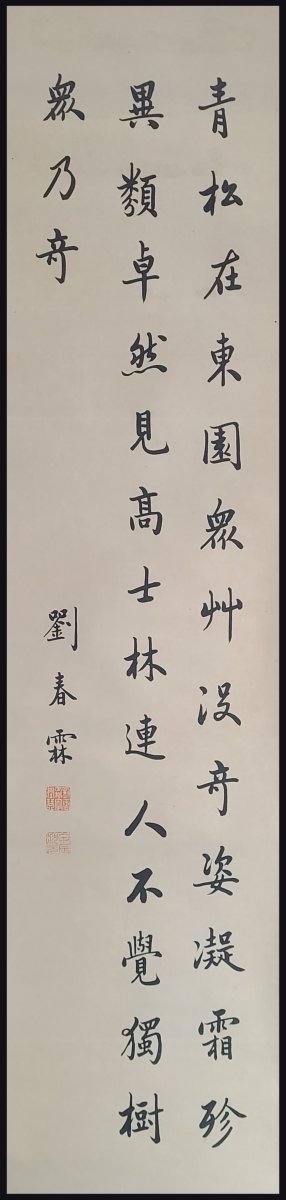 青松在東園眾艸沒竒姿凝霜殄
異類卓然見高士林連人不覺獨樹
眾乃竒
劉春霖